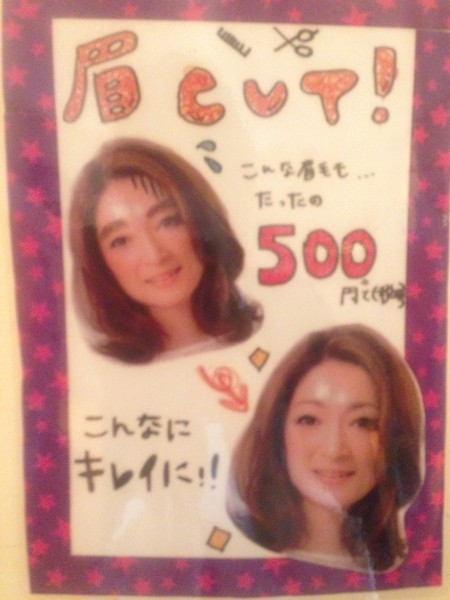 眉CUT!
こんな眉毛も...
たったの
500
円で
こんなに
キレイに!!